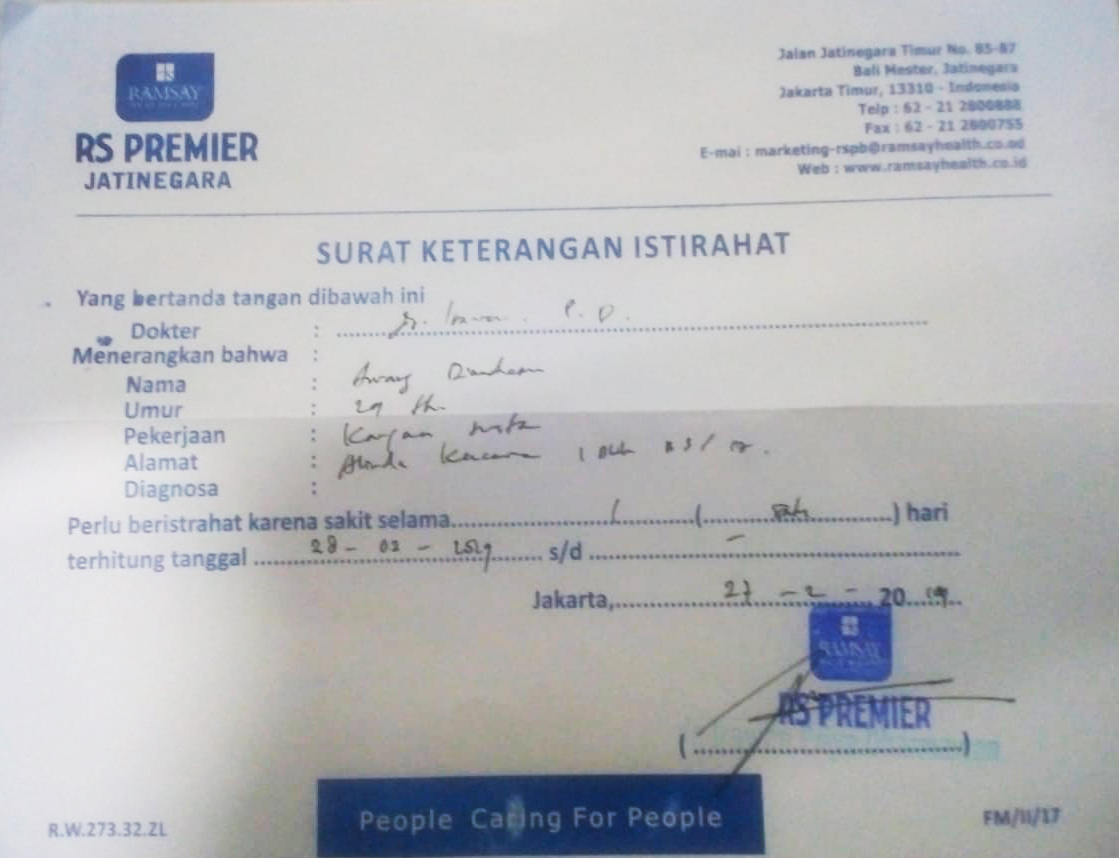 RAMSAY
RS PREMIER
JATINEGARA
Jalan Jatinegara Timur No. 85-87
Bali Mester, Jatinegara
Jakarta Timur, 13310 - Indonesia
Telp : 62 - 21 2800888
Fax : 62 - 21 2800755
E-mai : marketing-rspb@ramsayhealth.co.od
Web : www.ramsayhealth.co.id
SURAT KETERANGAN ISTIRAHAT
Yang bertanda tangan dibawah ini
Dokter :
Menerangkan bahwa :
Nama : Awang
Umur : 29 th.
Pekerjaan :
Alamat :
Diagnosa :
Perlu beristrahat karena sakit selama 1 ( satu ) hari
terhitung tanggal 28 - 02 - 2019 s/d -
Jakarta, 27 - 2 - 2019
RAMSAY
RS PREMIER
(..............................)
People Caring For People
R.W.273.32.ZL
FM/II/17